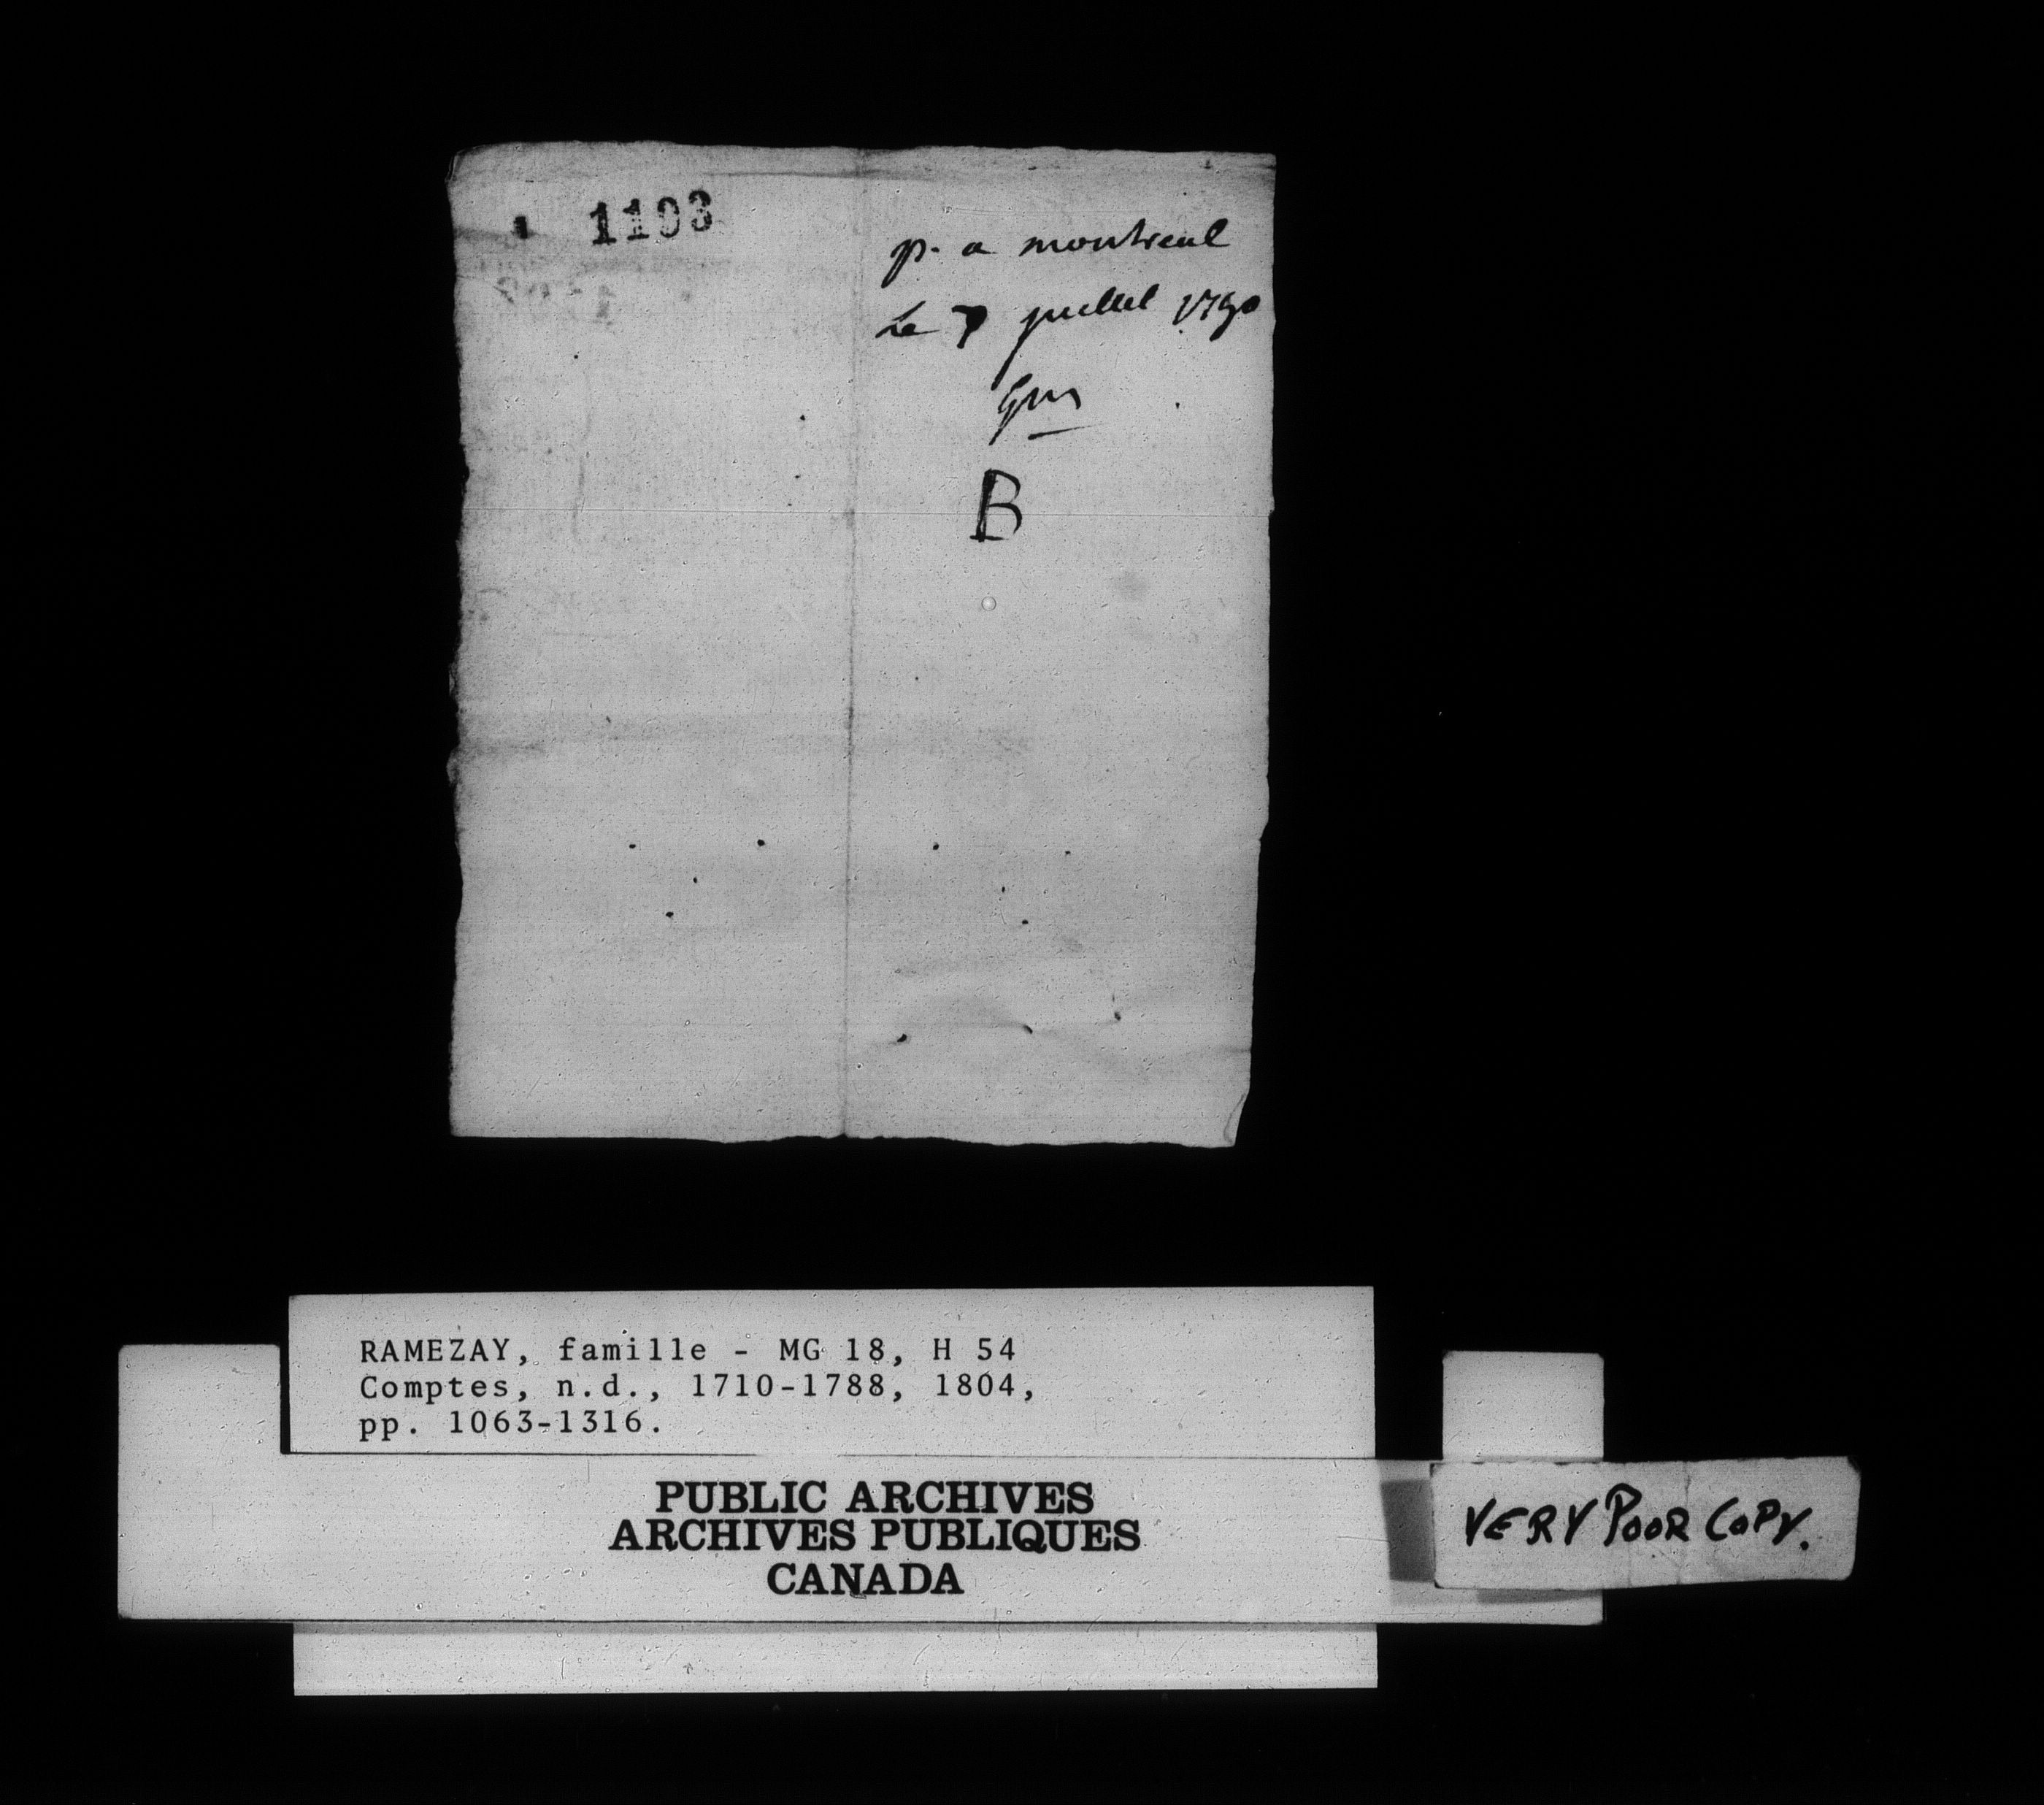 1103
p. a montreal
Le 7 juillet 1750
B
RAMEZAY, famille - MG 18, H 54
Comptes, n.d., 1710-1788, 1804,
pp. 1063-1316.
PUBLIC ARCHIVES
ARCHIVES PUBLIQUES
CANADA
VERY POOR COPY.